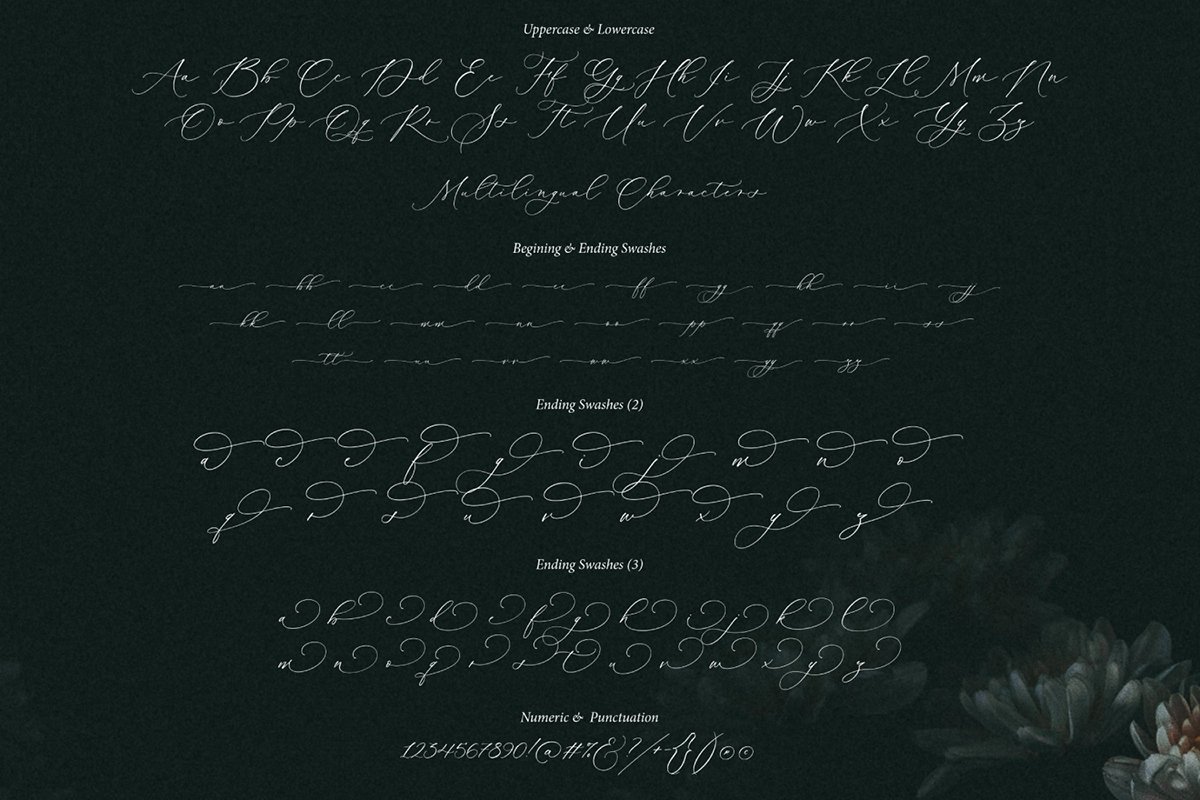 Uppercase & Lowercase
Aa Bb Cc Dd Ee Ff Gg Hh Ii Jj Kk Ll Mm Nn
Oo Pp Qq Rr Ss Tt Uu Vv Ww Xx Yy Zz
Multilingual Characters
Begining & Ending Swashes
aa bb cc dd ee ff gg hh ii jj
kk ll mm nn oo pp qq rr ss
tt uu vv ww xx yy zz
Ending Swashes (2)
a c e f g i j m n o
q r s u v w x y z
Ending Swashes (3)
a b c d e f g h i j k l
m n o q r s t u v w x y z
Numeric & Punctuation
1234567890!@#%&?/+-{}()®©